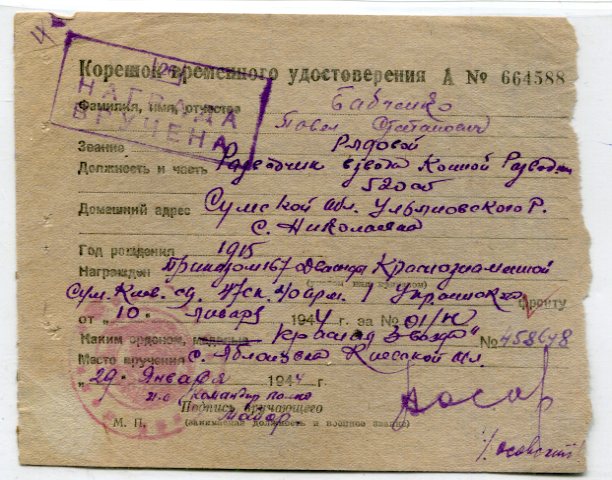 Корешок временного удостоверения А № 664588
НАГРАДА
ВРУЧЕНА
Фамилия, имя, отчество Бабченко
Павел Степанович
Звание Рядовой
Должность и часть Разведчик взвода Конной Разведки
520 сп
Домашний адрес Сумской обл. Ульяновского р.
с. Николаевка
Год рождения 1915
Награжден Приказом 167 дважды Краснознаменной
Сум. Киев. сд. 47 ск. 40 арм. 1 Укр фронту
от „10“ января 1944 г. за № 01/н
Каким орденом, медалью „Красная Звезда“ № 458648
Место вручения с. Яблоновка Киевской обл.
„29“ Января 1944 г.
и.о. Командир полка
Подпись вручающего
майор
М. П. (занимаемая должность и военное звание)